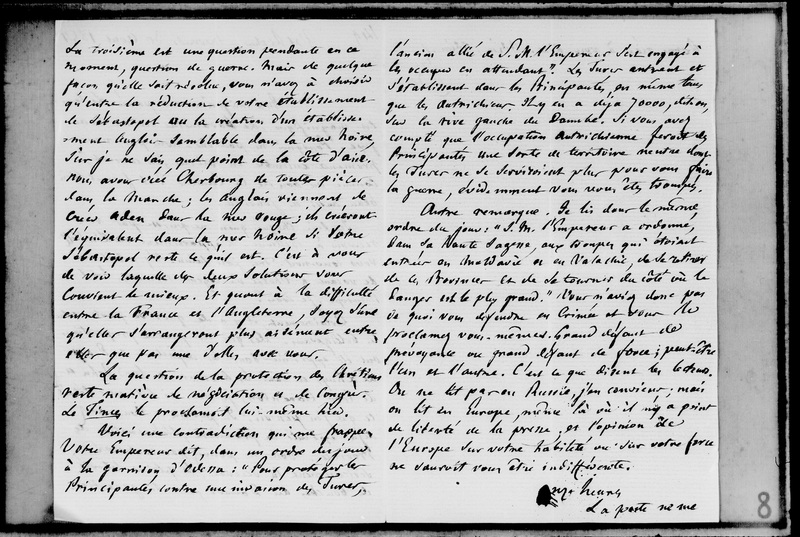 La troisième est une question pendante en ce
moment, question de guerre. Mais de quelque
façon qu'elle soit résolue, vous n'avez à choisir
qu'entre la réduction de votre établissement
de Sébastopol ou la création d'un établisse-
ment Anglais semblable dans la mer noire,
sur je ne sais quel point de la côte d'Asie.
Nous avons créé Cherbourg de toutes pièces
dans la Manche; les Anglais viennent de
créer Aden dans la mer rouge; ils créeront
l'équivalent dans la mer noire si votre
Sébastopol reste ce qu'il est. C'est à vous
de voir laquelle des deux solutions vous
convient le mieux. Et quant à la difficulté
entre la France et l'Angleterre, soyez sûre
qu'elles s'arrangeront plus aisément entre
elles que pas une d'elles avec vous.
La question de la protection des Chrétiens
reste matière de négociation et de Congrès.
Le Times le proclamait lui même hier.
Voici une contradiction qui me frappe.
Votre Empereur dit, dans un ordre du jour
à la garnison d'Odessa: "Pour protéger les
Principautés contre une invasion des Turcs,
l'ancien allié de S. M. l'Empereur s'est engagé à
les occuper en attendant". Les Turcs entrent et
s'établissent dans les Principautés, en même temps
que les Autrichiens. Il y en a déjà 70000, dit-on,
sur la rive gauche du Danube. Si vous avez
compté que l'occupation Autrichienne ferait des
Principautés une sorte de territoire neutre dont
les Turcs ne se serviroient plus pour vous faire
la guerre, évidemment vous vous êtes trompés.
Autre remarque. Je lis dans le même
ordre du jour: "S. M. l'Empereur a ordonné,
dans sa haute sagesse, aux troupes qui étoient
entrées en Moldavie et en Valachie, de se retirer
de ces Provinces et de se tourner du côté où le
danger est le plus grand." Vous n'aviez donc pas
de quoi vous défendre en Crimée et vous le
proclamez vous-mêmes. Grand défaut de
prévoyance ou grand défaut de force; peut-être
l'un et l'autre. C'est ce que disent les lecteurs.
On ne lit pas en Russie, j'en conviens; mais
on lit en Europe, même là où il n'y a point
de liberté de la presse, et l'opinion de
l'Europe sur votre habileté ou sur votre force
ne sauroit vous être indifférente.
onze heures
La poste ne me
8